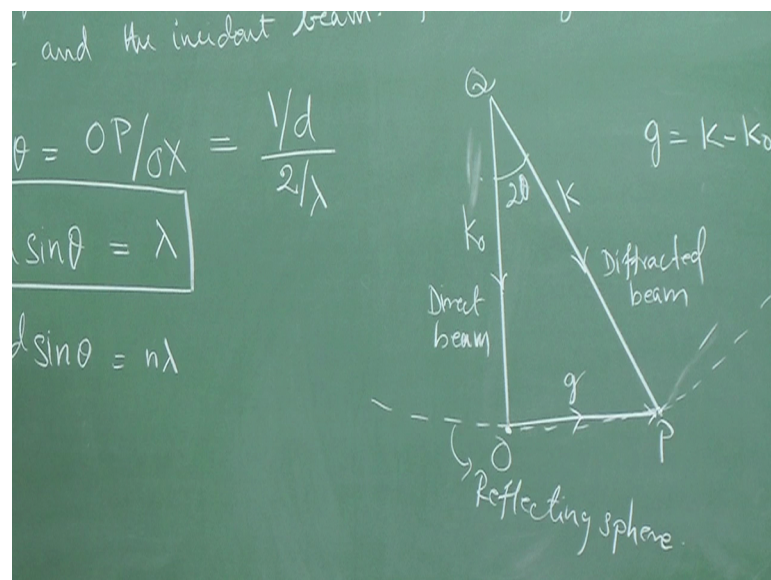 and the incident beam.
θ = OP/OX = 1/d / 2/λ
sinθ = λ
d sinθ = nλ
Q
2θ
K₀
K
g = K - K₀
Direct
beam
Diffracted
beam
g
O
P
Reflecting sphere.